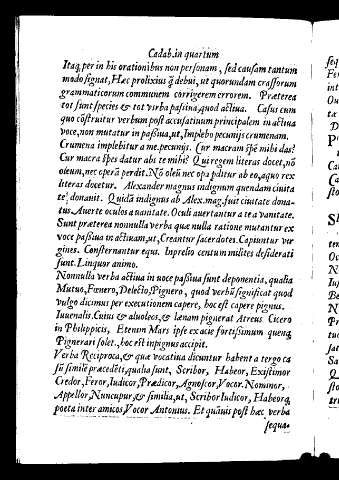 Cadab. in quartum
Itaq, per in his orationibus non personam, sed causam tantum
modo signat, Hæc prolixius q̃ debui, ut quorundam crassorum
grammaticorum communem corrigerem errorem. Præterea
tot sunt species & tot verba passiua, quod actiua. Casus cum
quo cõstruitur verbum post accusatiuum principalem in actiua
voce, non mutatur in passiua, ut, Implebo pecunijs crumenam.
Crumena implebitur a me pecunijs. Cur macram spẽ mihi das?
Cur macra spes datur abs te mihi? Qui regem literas docet, nõ
oleum, nec operã perdit. Nõ oleũ nec opa pditur ab eo, aquo rex
literas docetur. Alexander magnus indignum quendam ciuita
te donauit. Quidã indignus ab Alex. mag. fuit ciuitate dona-
tus. Auerte oculos a uanitate. Oculi auertantur a te a vanitate.
Sunt præterea nonnulla verba quæ nulla ratione mutantur ex
voce passiua in actiuam, ut, Creantur sacerdotes. Capiuntur vir
gines. Consternantur equi. Inprelio centum milites desiderati
sunt. Linquor animo.
Nonnulla verba actiua in uoce passiua sunt deponentia, qualia
Mutuo, Fenero, Delecto, Pignero, quod verbũ significat quod
vulgo dicimus per executionem capere, hoc est capere pignus.
Iuuenalis. Cuius & alueolos, & lænam pignerat Atreus. Cicero
in Philippicis, Etenim Mars ipse ex acie fortissimum quenq
Pignerari solet, hoc est in pignus accipit.
Verba Reciproca, & quæ vocatiua dicuntur habent a tergo ca
sũ similẽ præcedẽti, qualia sunt, Scribor, Habeor, Existimor
Credor, Feror, Iudicor, Prædicor, Agnoscor, Vocor, Nominor,
Appellor, Nuncupor, & similia, ut, Scribor Iudicor, Habeorq,
poeta inter amicos, Vocor Antonius. Et quãuis post hæc verba
sequa-